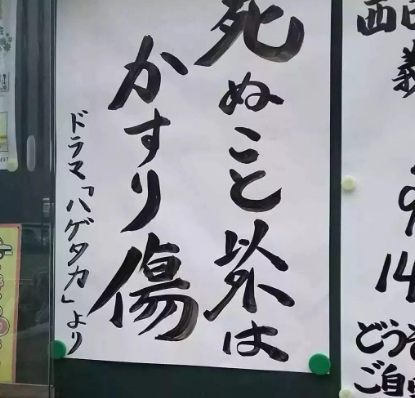 死ぬこと以外は
かすり傷
ドラマ「ハゲタカ」より
義
9
14
どう
ご自